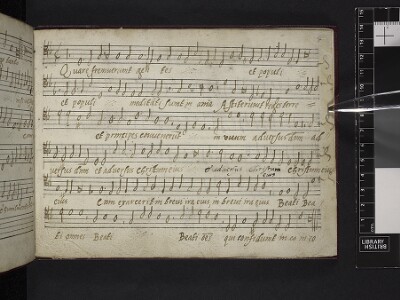 Quare fremuerunt gen tes et populi
et populi meditati sunt in ania Astiterunt reges terre
et principes convenerunt in unum adversus dom ad
versus dom et adversus christum eius adversus christum eius christum eius
eius Cum exarcerit in brevi ira eius in brevi ira eius Beati Bea
ti omnes Beati qui confidunt in eo in eo
BRITISH LIBRARY